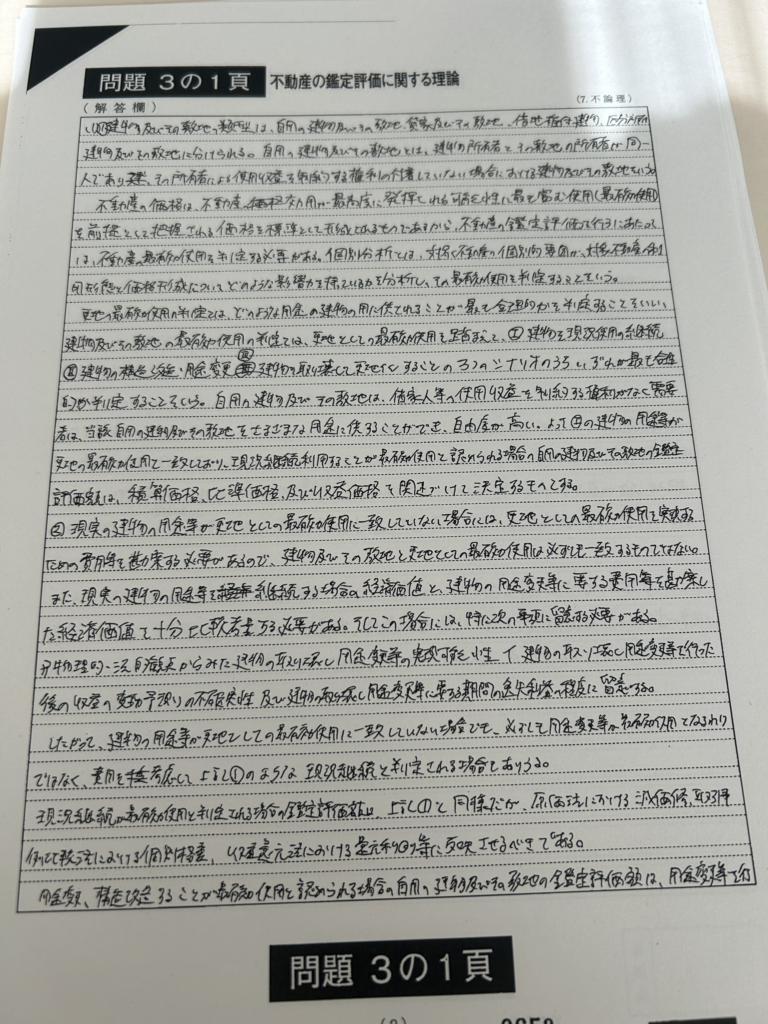 問題 3の1頁 不動産の鑑定評価に関する理論
(解答欄) (7.不論理)
建物及びその敷地の類型は、自用の建物及びその敷地、貸家及びその敷地、借地権付建物、区分所有
建物及びその敷地に分けられる。自用の建物及びその敷地とは、建物の所有者とその敷地の所有者が同一
人であり、その所有者による使用収益を制約する権利の付着していない場合における建物及びその敷地をいう。
不動産の価格は、不動産の効用が最高度に発揮される可能性に最も富む使用(最有効使用)
を前提として把握される価格を標準として形成されるものであるから、不動産の鑑定評価を行うにあたって
は、不動産の最有効使用を判定する必要がある。個別分析とは、対象不動産の個別的要因が、対象不動産の利
用形態と価格形成についてどのような影響力を持っているかを分析し、その最有効使用を判定することをいう。
更地の最有効使用の判定は、どのような用途の建物の用に供されることが最も合理的かを判定することをいい、
建物及びその敷地の最有効使用の判定では、更地としての最有効使用を踏まえて、Ⅰ建物を現況使用の継続
Ⅱ建物の構造改造・用途変更 Ⅲ建物を取り壊して更地化することの3つのシナリオのうちいずれが最も合理
的か判定することをいう。自用の建物及びその敷地は、借家人等の使用収益を制約する権利がなく需要
者は、当該自用の建物及びその敷地をさまざまな用途に供することができ、自由度が高い。よって の建物の用途等が
更地の最有効使用と一致しており、現況継続利用することが最有効使用と認められる場合の自用の建物及びその敷地の鑑定
評価額は、積算価格、比準価格、及び収益価格を関連づけて決定するものとする。
② 現実の建物の用途等が更地としての最有効使用に一致していない場合には、更地としての最有効使用を実現する
ための費用等を勘案する必要があるので、建物及びその敷地と更地としての最有効使用は必ずしも一致するものではない。
また、現実の建物の用途等を継続する場合の経済価値と、建物の用途変更等に要する費用等を勘案し
た経済価値を十分比較考量する必要がある。そしてこの場合には、特に次の事項に留意する必要がある。
ア 物理的・法的観点からみた建物の取り壊し用途変更等の実現可能性 イ 建物の取り壊し用途変更等を行った
後の収益の変動予測の不確実性 及び建物の取り壊し用途変更等に要する期間の逸失利益の程度に留意する。
したがって、建物の用途等が更地としての最有効使用に一致していない場合でも、必ずしも用途変更等が最有効使用となるわけ
ではなく、費用を考慮して上記①のような現況継続と判定される場合もありうる。
現況継続が最有効使用と判定される場合の鑑定評価額は、上記①と同様だが、原価法における減価修正、取引事
例比較法における個別格差、収益還元法における還元利回り等に反映させるべきである。
用途変更、構造改造することが最有効使用と認められる場合の自用の建物及びその敷地の鑑定評価額は、用途変更等を行
問題 3の1頁